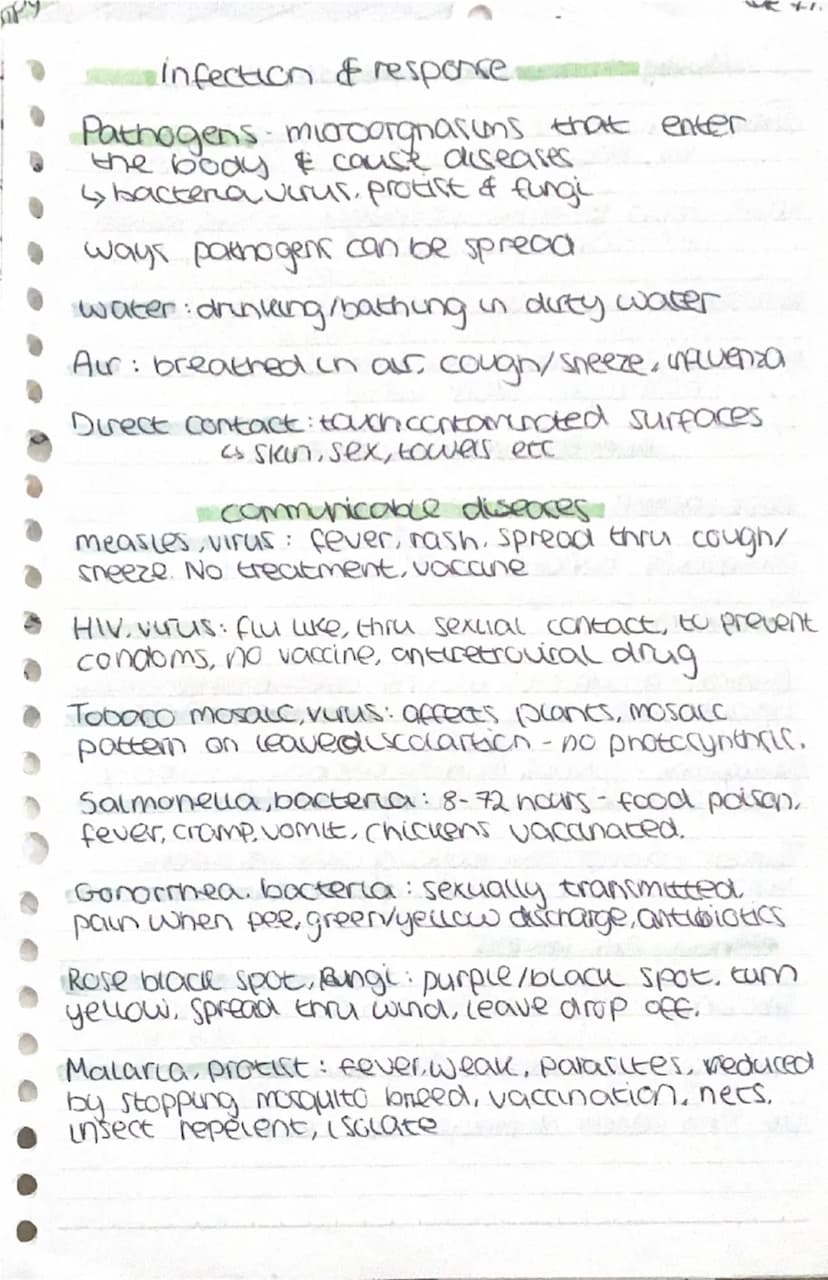 infection & response
Pathogens - microorgnasims that enter
the body & cause diseases
↳ bacteria, virus, protist & fungi
ways pathogens can be spread
water : drinking/bathing in dirty water
Air : breathed in air. cough/sneeze, influenza
Direct contact : touch contaminated surfaces
↳ skin, sex, towels etc
communicable diseases
measles, virus : fever, rash. spread thru cough/
sneeze. No treatment, vaccine
HIV, virus : flu like, thru sexual contact, to prevent
condoms, no vaccine, antiretroviral drug
Tobacco mosaic, virus : affects plants, mosaic
pattern on leave discolartion - no photosynthesis.
Salmonella, bacteria : 8-72 hours - food poison,
fever, cramp, vomit, chickens vaccinated.
Gonorrhea. bacteria : sexually transmitted
pain when pee, green/yellow discharge, antibiotics
Rose black spot, Fungi : purple/black spot. turn
yellow. spread thru wind, leave drop off.
Malaria, protist : fever, weak, parasites. reduced
by stopping mosquito breed, vaccination, nets,
insect repelent, isolate